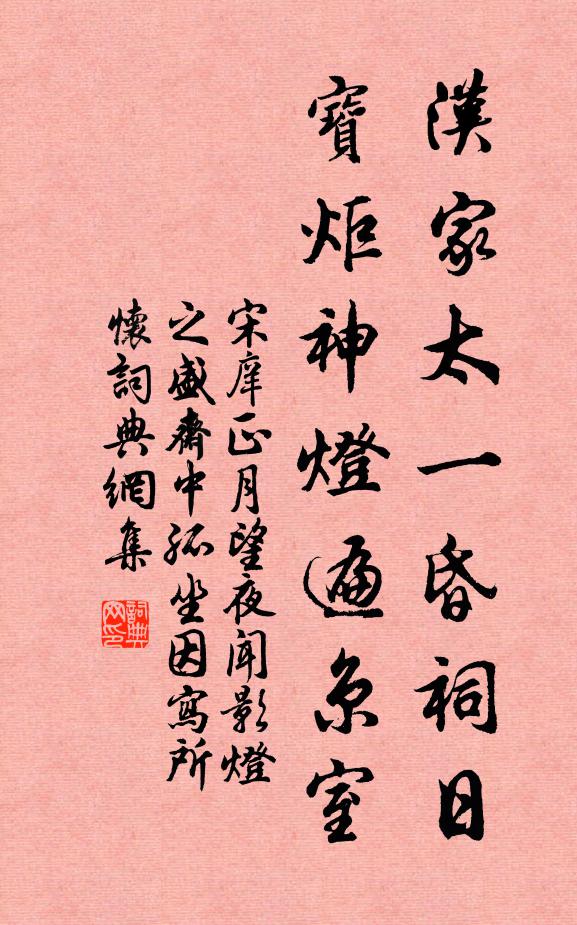 漢家太一昏祠日
寶炬神燈遍京室
宋庠正月望夜聞影燈
之盛齋中孤坐因寫所
懷詞典網集
詞典网印